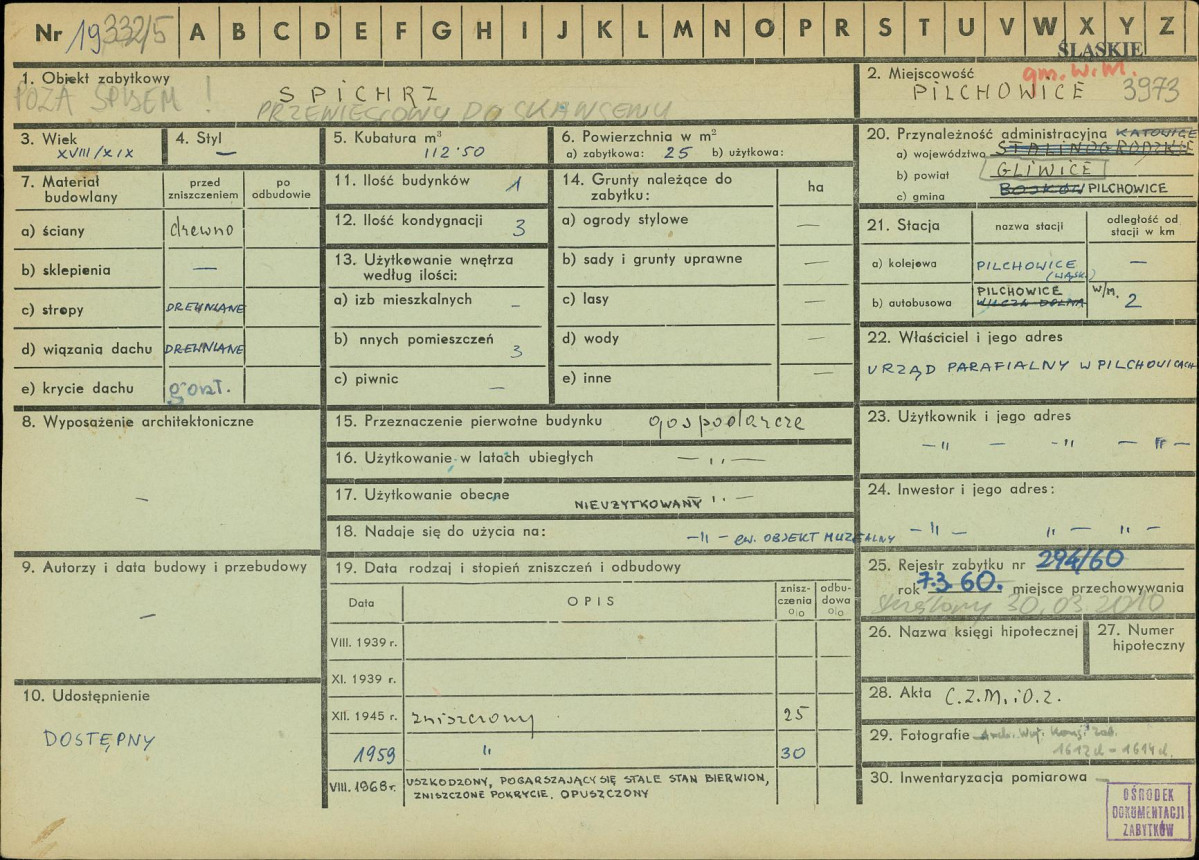 Nr 19332/5 A B C D E F G H I J K L M N O P R S T U V W X Y Z
ŚLĄSKIE
1. Obiekt zabytkowy
POZA SPISEM !
SPICHRZ
PRZEWIEZIONY DO SKANSENU
2. Miejscowość
gm. W.M.
PILCHOWICE 3973
3. Wiek
XVIII/XIX
4. Styl
—
5. Kubatura m³
112.50
6. Powierzchnia w m²
a) zabytkowa: 25 b) użytkowa:
20. Przynależność administracyjna KATOWICE
a) województwo STALINOGRODZKIE
b) powiat GLIWICE
c) gmina BOJKÓW PILCHOWICE
7. Materiał budowlany
przed zniszczeniem
po odbudowie
a) ściany drewno
b) sklepienia —
c) stropy DREWNIANE
d) wiązania dachu DREWNIANE
e) krycie dachu gont.
11. Ilość budynków 1
12. Ilość kondygnacji 3
13. Użytkowanie wnętrza
według ilości:
a) izb mieszkalnych –
b) nnych pomieszczeń 3
c) piwnic —
14. Grunty należące do
zabytku:
ha
a) ogrody stylowe —
b) sady i grunty uprawne —
c) lasy —
d) wody —
e) inne —
21. Stacja
nazwa stacji
odległość od
stacji w km
a) kolejowa PILCHOWICE —
(WĄSK.)
b) autobusowa PILCHOWICE W/M. 2
WILCZA DOLNA
22. Właściciel i jego adres
URZĄD PARAFIALNY W PILCHOWICACH
23. Użytkownik i jego adres
— " — — " — "
24. Inwestor i jego adres:
— " — " — " —
8. Wyposażenie architektoniczne
—
15. Przeznaczenie pierwotne budynku gospodarcze
16. Użytkowanie w latach ubiegłych — " —
17. Użytkowanie obecne NIEUŻYTKOWANY " —
18. Nadaje się do użycia na: — " — ew. OBJEKT MUZEALNY
9. Autorzy i data budowy i przebudowy
—
19. Data rodzaj i stopień zniszczeń i odbudowy
Data
OPIS
znisz-
czenia
%
odbu-
dowa
%
VIII. 1939 r.
XI. 1939 r.
XII. 1945 r. zniszczony 25
1959 " 30
VIII. 1968 r. USZKODZONY, POGARSZAJĄCY SIĘ STALE STAN BIERWION,
ZNISZCZONE POKRYCIE. OPUSZCZONY
10. Udostępnienie
DOSTĘPNY
25. Rejestr zabytku nr 294/60
rok 7.3.60. miejsce przechowywania
skreślony 30.03.2010
26. Nazwa księgi hipotecznej
27. Numer
hipoteczny
28. Akta C.Z.M.iO.Z.
29. Fotografie Arch. Woj. Kons. Zab.
1612d – 1614d.
30. Inwentaryzacja pomiarowa —
OŚRODEK
DOKUMENTACJI
ZABYTKÓW